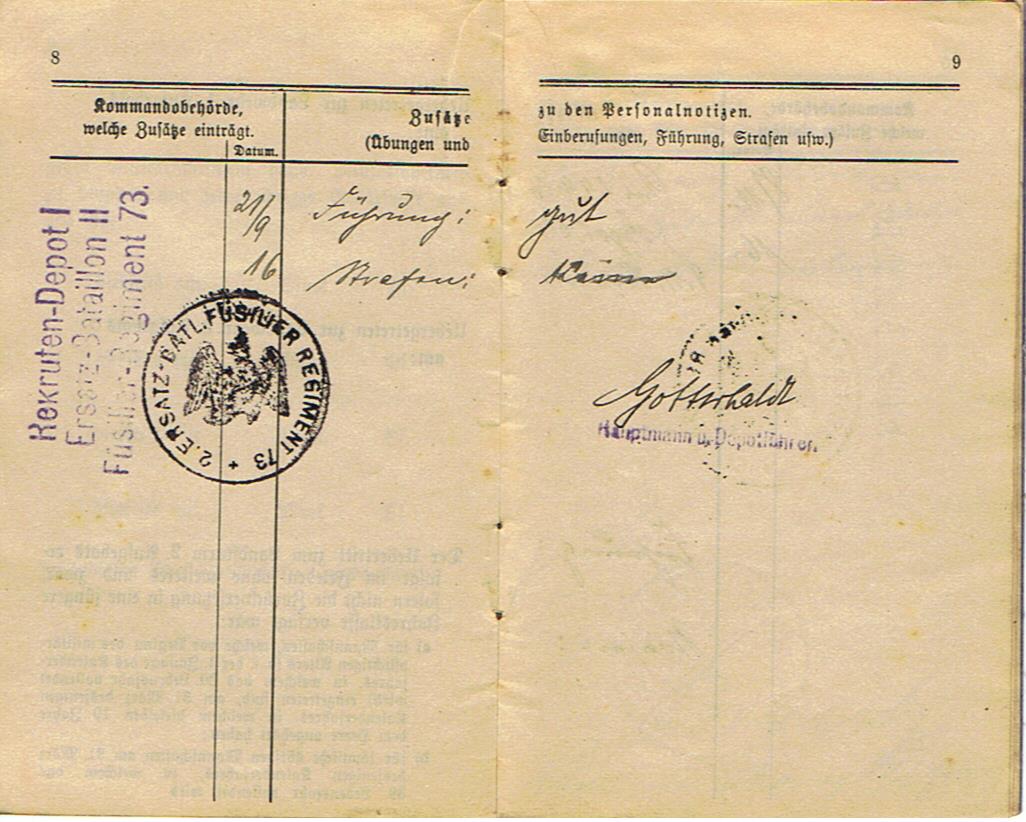 8
Kommandobehörde,
welche Zusätze einträgt.
Datum.
Zusätze
(Übungen und
Rekruten-Depot I
Ersatz-Bataillon II
Füsilier-Regiment 73.
21/9
16
Führung:
Strafen:
2. ERSATZ-BATL. FÜSILIER REGIMENT 73
9
zu den Personalnotizen.
Einberufungen, Führung, Strafen usw.)
gut
Keine
Hauptmann u. Depotführer.